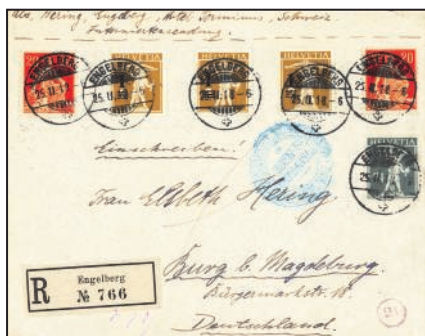 Hering, Engelberg, Hotel Terminus, Schweiz
Interniertensendung.
HELVETIA HELVETIA HELVETIA
20 20
ENGELBERG ENGELBERG ENGELBERG ENGELBERG ENGELBERG
25.II.18.-6
HELVETIA
ENGELBERG
Einschreiben!
Frau Elsbeth Hering.
Burg b. Magdeburg.
Bürgermarkstr. 18.
Deutschland.
R Engelberg
№ 766